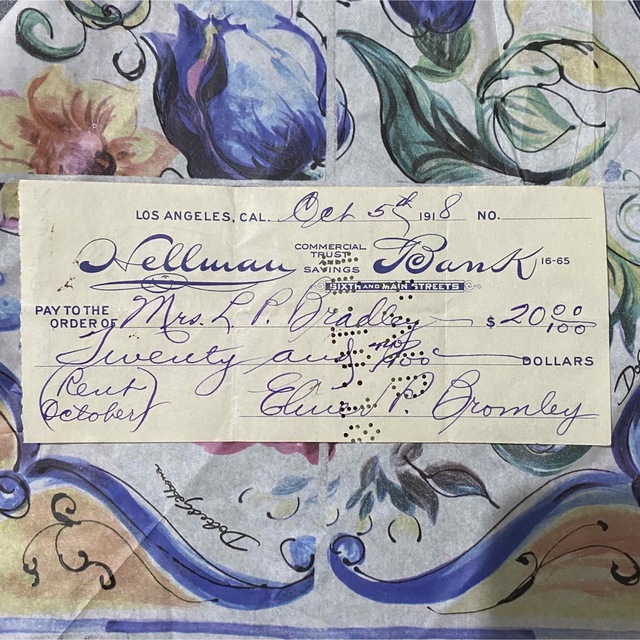 LOS ANGELES, CAL. Oct 5th 1918 NO.
Hellman COMMERCIAL TRUST AND SAVINGS Bank 16-65
SIXTH AND MAIN STREETS
PAY TO THE ORDER OF Mrs. L. P. Bradley $ 20 00/100
Twenty and no/100 DOLLARS
(Rent October)
P. Bromley
Dolce&Gabbana